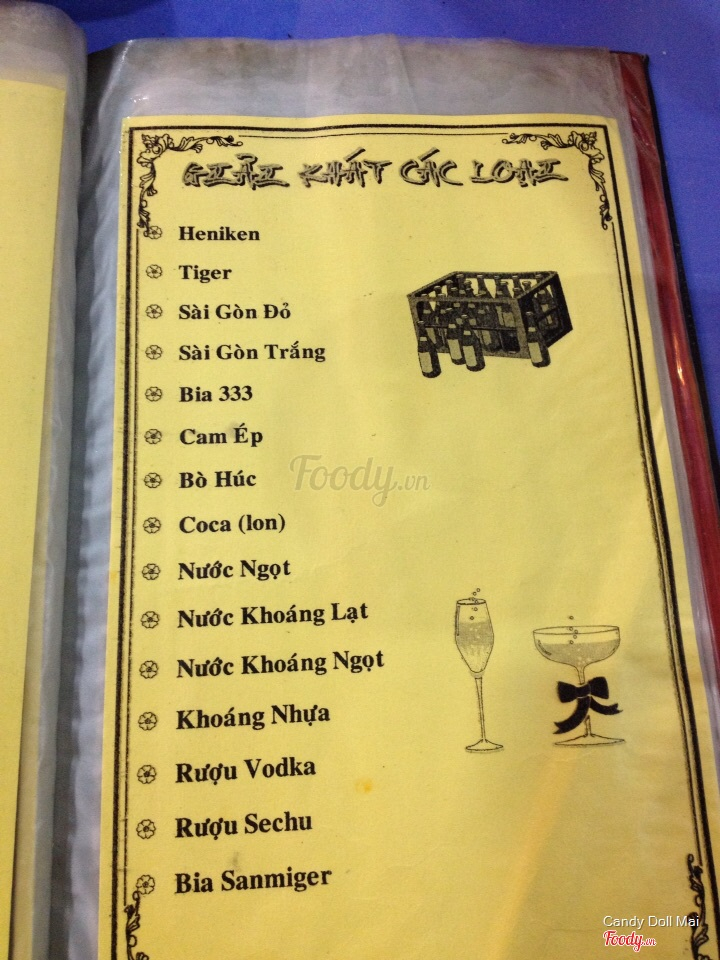 GIẢI KHÁT CÁC LOẠI
Heniken
Tiger
Sài Gòn Đỏ
Sài Gòn Trắng
Bia 333
Cam Ép
Bò Húc
Foody.vn
Coca (lon)
Nước Ngọt
Nước Khoáng Lạt
Nước Khoáng Ngọt
Khoáng Nhựa
Rượu Vodka
Rượu Sechu
Bia Sanmiger
Candy Doll Mai
Foody.vn